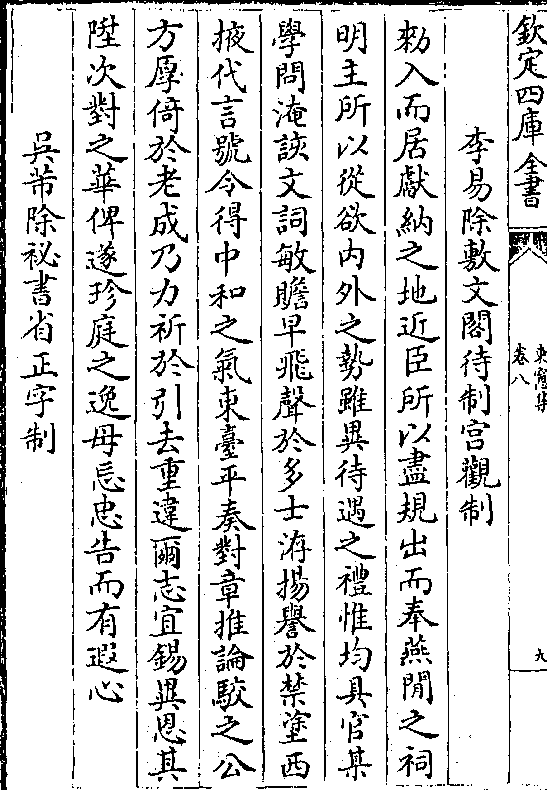 欽定四庫全書
東窻集
卷八
九
李易除敷文閣待制宫觀制
勅入而居獻納之地近臣所以盡規出而奉燕閒之祠
明主所以從欲内外之勢雖異待遇之禮惟均具官某
學問淹該文詞敏贍早飛聲於多士洊揚譽於禁塗西
掖代言號令得中和之氣東臺平奏對章推論駮之公
方厚倚於老成乃力祈於引去重違爾志宜錫異恩其
陞次對之華俾遂珍庭之逸毋忘忠告而有遐心
吳芾除祕書省正字制